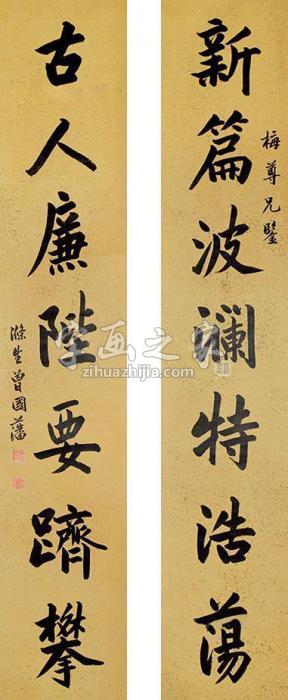 梅尊兄鑒
新篇波瀾特浩蕩
古人廉陛要躋攀
滌生曾國藩
字画之家
zihuazhijia.com